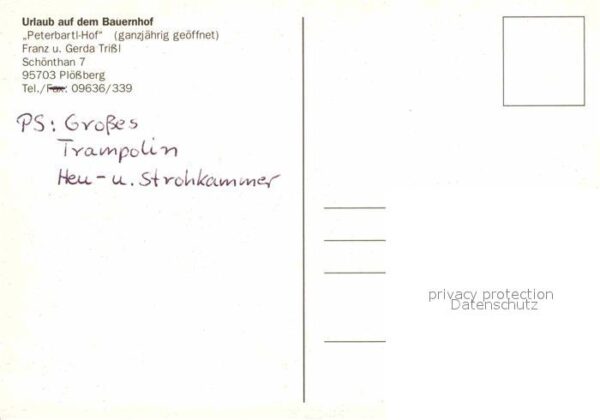 Urlaub auf dem Bauernhof
„Peterbartl-Hof" (ganzjährig geöffnet)
Franz u. Gerda Trißl
Schönthan 7
95703 Plößberg
Tel./Fax: 09636/339
PS: Großes
Trampolin
Heu- u. Strohkammer
privacy protection
Datenschutz